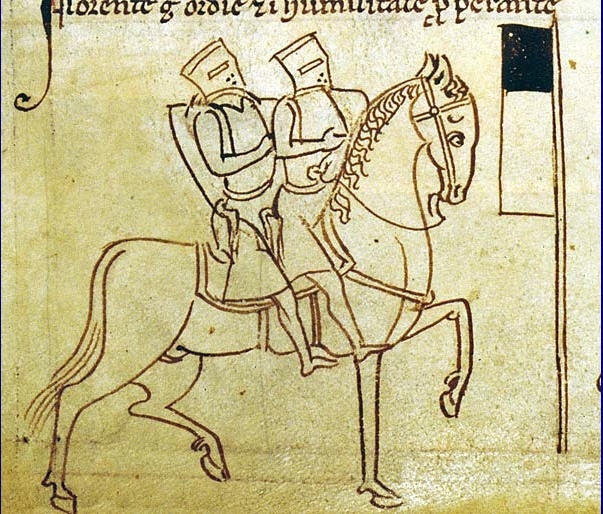 florente g ordie ⁊ i humilitate ꝓperante